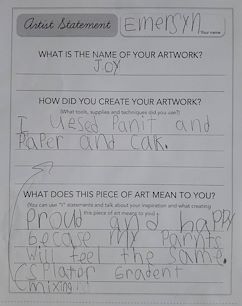 Artist Statement
Emersyn
Your name
WHAT IS THE NAME OF YOUR ARTWORK?
JOY
HOW DID YOU CREATE YOUR ARTWORK?
(What tools, supplies and techniques did you use?)
I Uesed Panit and
Paper and Cak.
WHAT DOES THIS PIECE OF ART MEAN TO YOU?
(You can use "I" statements and talk about your inspiration and what creating
this piece of art means to you.)
Proud and haPPy
becase my Parints
will feel the same.
Splator Gradent
mixing